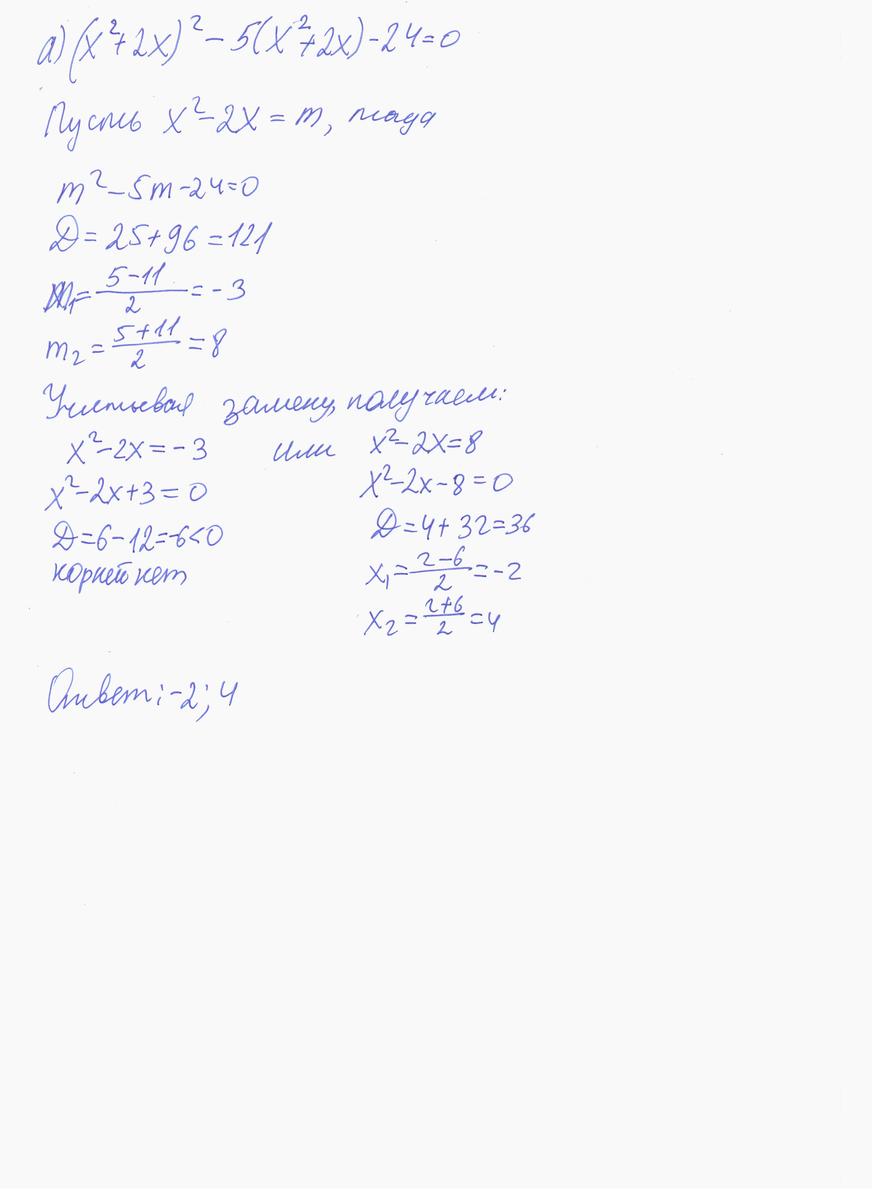 а) (x²+2x)² – 5(x²+2x) - 24 = 0
Пусть x² – 2x = m, тогда
m² – 5m - 24 = 0
D = 25 + 96 = 121
m₁ = (5 - 11)/2 = - 3
m₂ = (5 + 11)/2 = 8
Учитывая замену, получаем:
x² – 2x = - 3 или x² – 2x = 8
x² – 2x + 3 = 0 x² – 2x - 8 = 0
D = 6 - 12 = -6 < 0 D = 4 + 32 = 36
корней нет x₁ = (2 - 6)/2 = -2
x₂ = (2 + 6)/2 = 4
Ответ: -2; 4